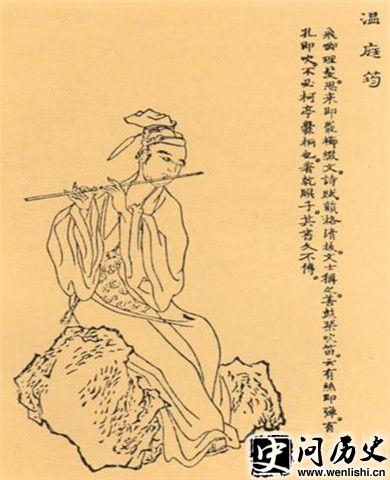 温庭筠
飛卿理髮思来即罷櫛綴文詩賦韻格清拔文士稱之善鼓琴吹笛云有絲即彈有
孔即吹不必柯亭爨桐也著乾𦠆子其書久不傳
史 问历史
www.wenlishi.cn